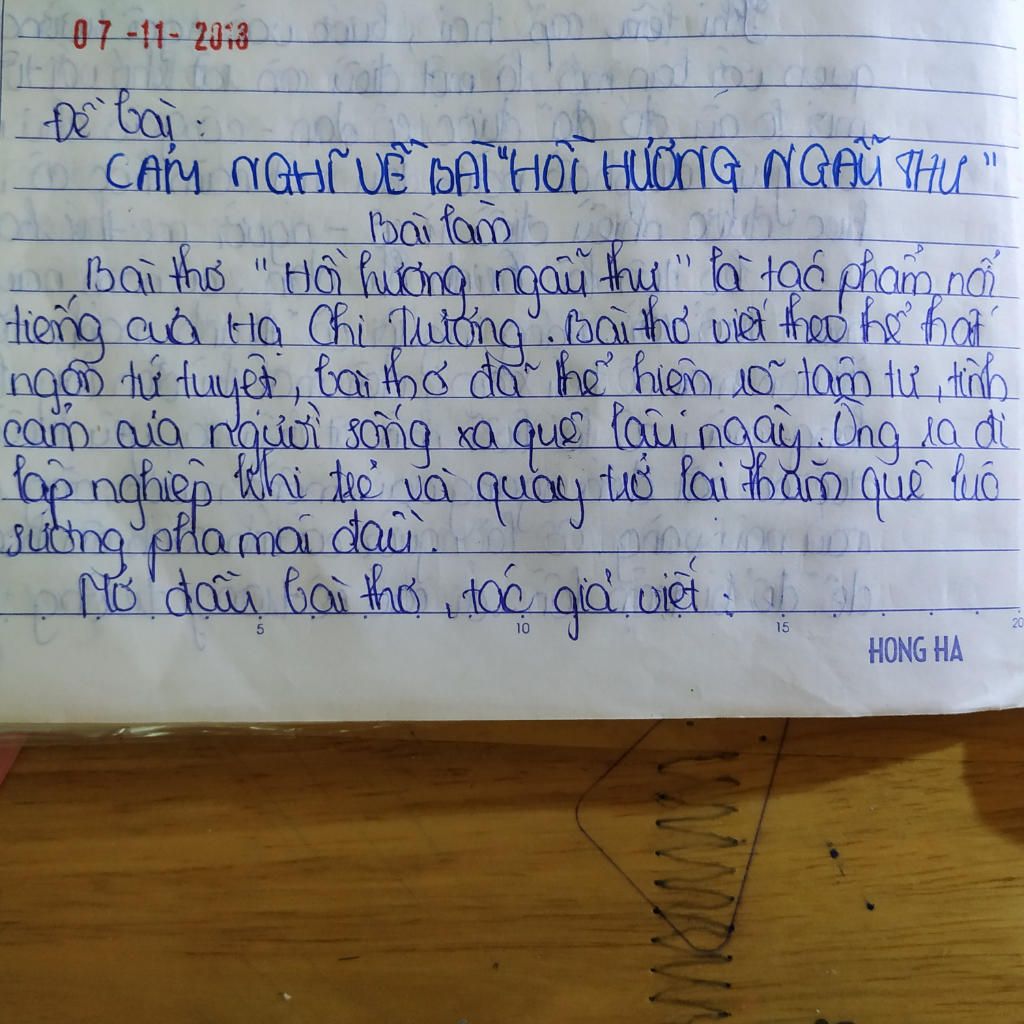 07-11-2013
Đề bài:
CẢM NGHĨ VỀ BÀI "HỒI HƯƠNG NGẪU THƯ"
Bài làm
Bài thơ "Hồi hương ngẫu thư" là tác phẩm nổi
tiếng của Hạ Chi Trương. Bài thơ viết theo thể thất
ngôn tứ tuyệt, bài thơ đã thể hiện rõ tâm tư, tình
cảm của người sống xa quê lâu ngày. Ông ra đi
lập nghiệp khi trẻ và quay trở lại thăm quê lúc
sương pha mái đầu.
Mở đầu bài thơ, tác giả viết:
5 10 15 20
HONG HA